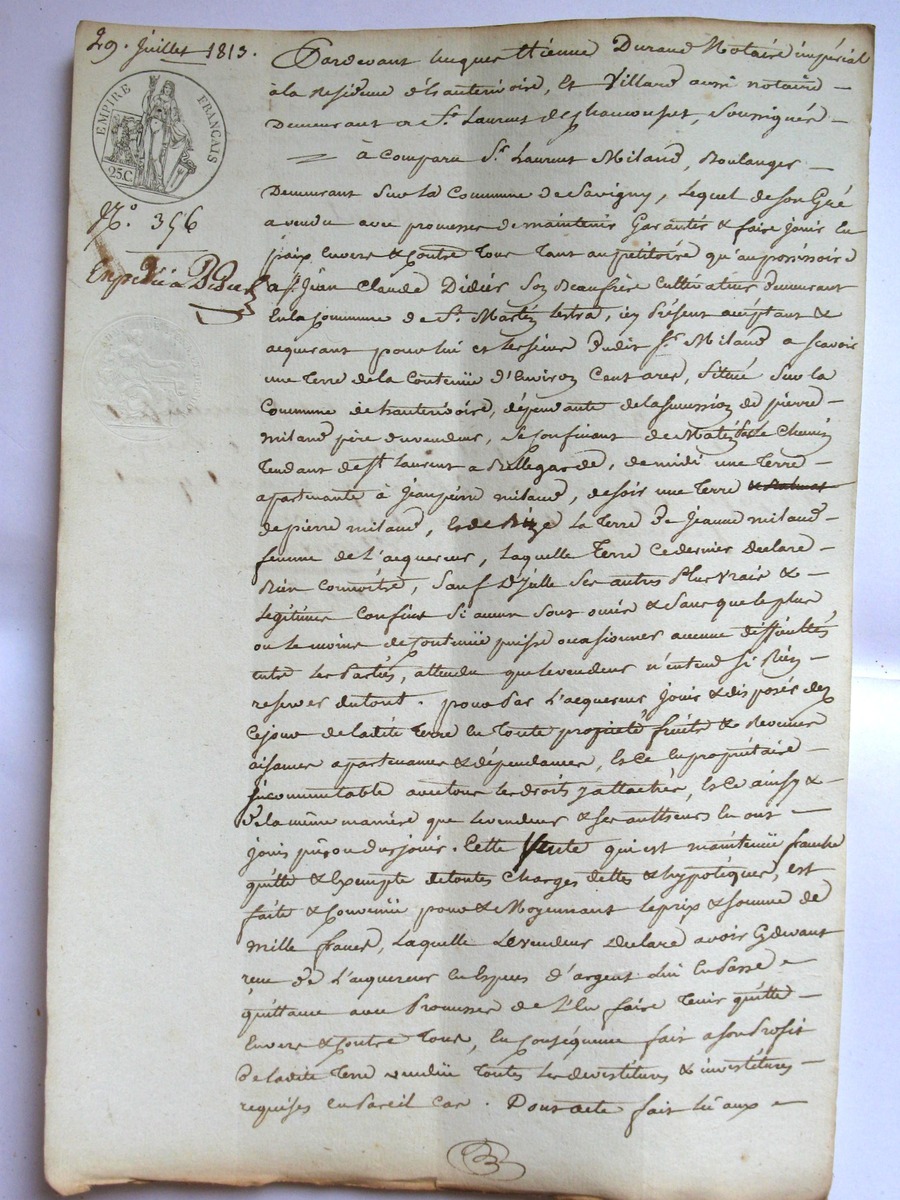 29. Juillet 1813.
EMPIRE FRANÇAIS
25.C.
N.° 356
Expédié à Didier
Pardevant Jacques Etienne Durand Notaire impérial
à la Residence d'hauterivoire, Et Villard aussi notaire
Demeurant a St. Laurent de Chamousset, Soussignés
à Comparu Sr. Laurent Miland, Boulanger
Demeurant Sur la Commune de Savigny, Lequel de son Gré
a vendu avec promesse de maintenir Garantir & faire jouir En
paix Envers & Contre Tous Tant au petitoire qu'au possessoire
a Sr. Jean Claude Didier Son Beaufrère Cultivateur Demeurant
En la Commune de St. Martin lestra, icy Présent acceptant &
acquerant pour lui et les siens Dudit Sr. Miland a scavoir
une Terre de la Contenüe d'Environ Cent ares, Situé Sur la
Commune de hauterivoire, dépendante de la succession de pierre
miland père du vendeur, Se Confinant de Matin le Chemin
Tendant de St Laurent a Bellegarde, de midi une Terre
apartenante à Jean pierre miland, de soir une Terre
de pierre miland, Et de Bize La Terre De Jeanne miland
femme de L'acquereur, Laquelle Terre ce dernier declare
Bien connoitre, Sauf D'jcelle Ses autres Plus Vrais &
Legitimes Confins Si aucun Sont omis & Sans que le plus
ou le moins de Contenüe puisse ocasionner aucune difficultés
entre Les Parties, attendu que le vendeur n'entend Si Rien
reserver du tout. pour Par L'acquereur jouir & disposer dez
Ce jour de ladite Terre En Toute propriete fruits & Revenus
aisances apartenances & dépendances, Et ce En propriétaire
incommutable avec tous les droits y attachés, Et Ce ainsy &
De la même manière que Le vendeur & Ses autheurs En ont
jouis pu ou du jouir. Cette Vente qui est maintenüe franche
quitte & Exempte de toutes Charges dettes & hypotéques, est
faite & Convenüe pour & Moyennant Le prix & somme de
Mille francs, Laquelle Le vendeur Declare avoir Cydevant
reçu De L'acquereur En Especes d'argent Lui En Passe
quittance avec Promesse de L'En faire Tenir quitte
Envers & Contre Tous, En Conséquence fait a Son Profit
De ladite Terre vendüe Toutes Les devestitures & investitures
requises en Pareil Cas. Dont acte fait lû aux